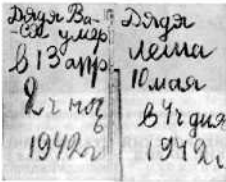 Дядя Ва-
ся умер
в 13 апр
2 ч ноч
1942 г
Дядя
Леша
10 мая
в 4 ч дня
1942 г